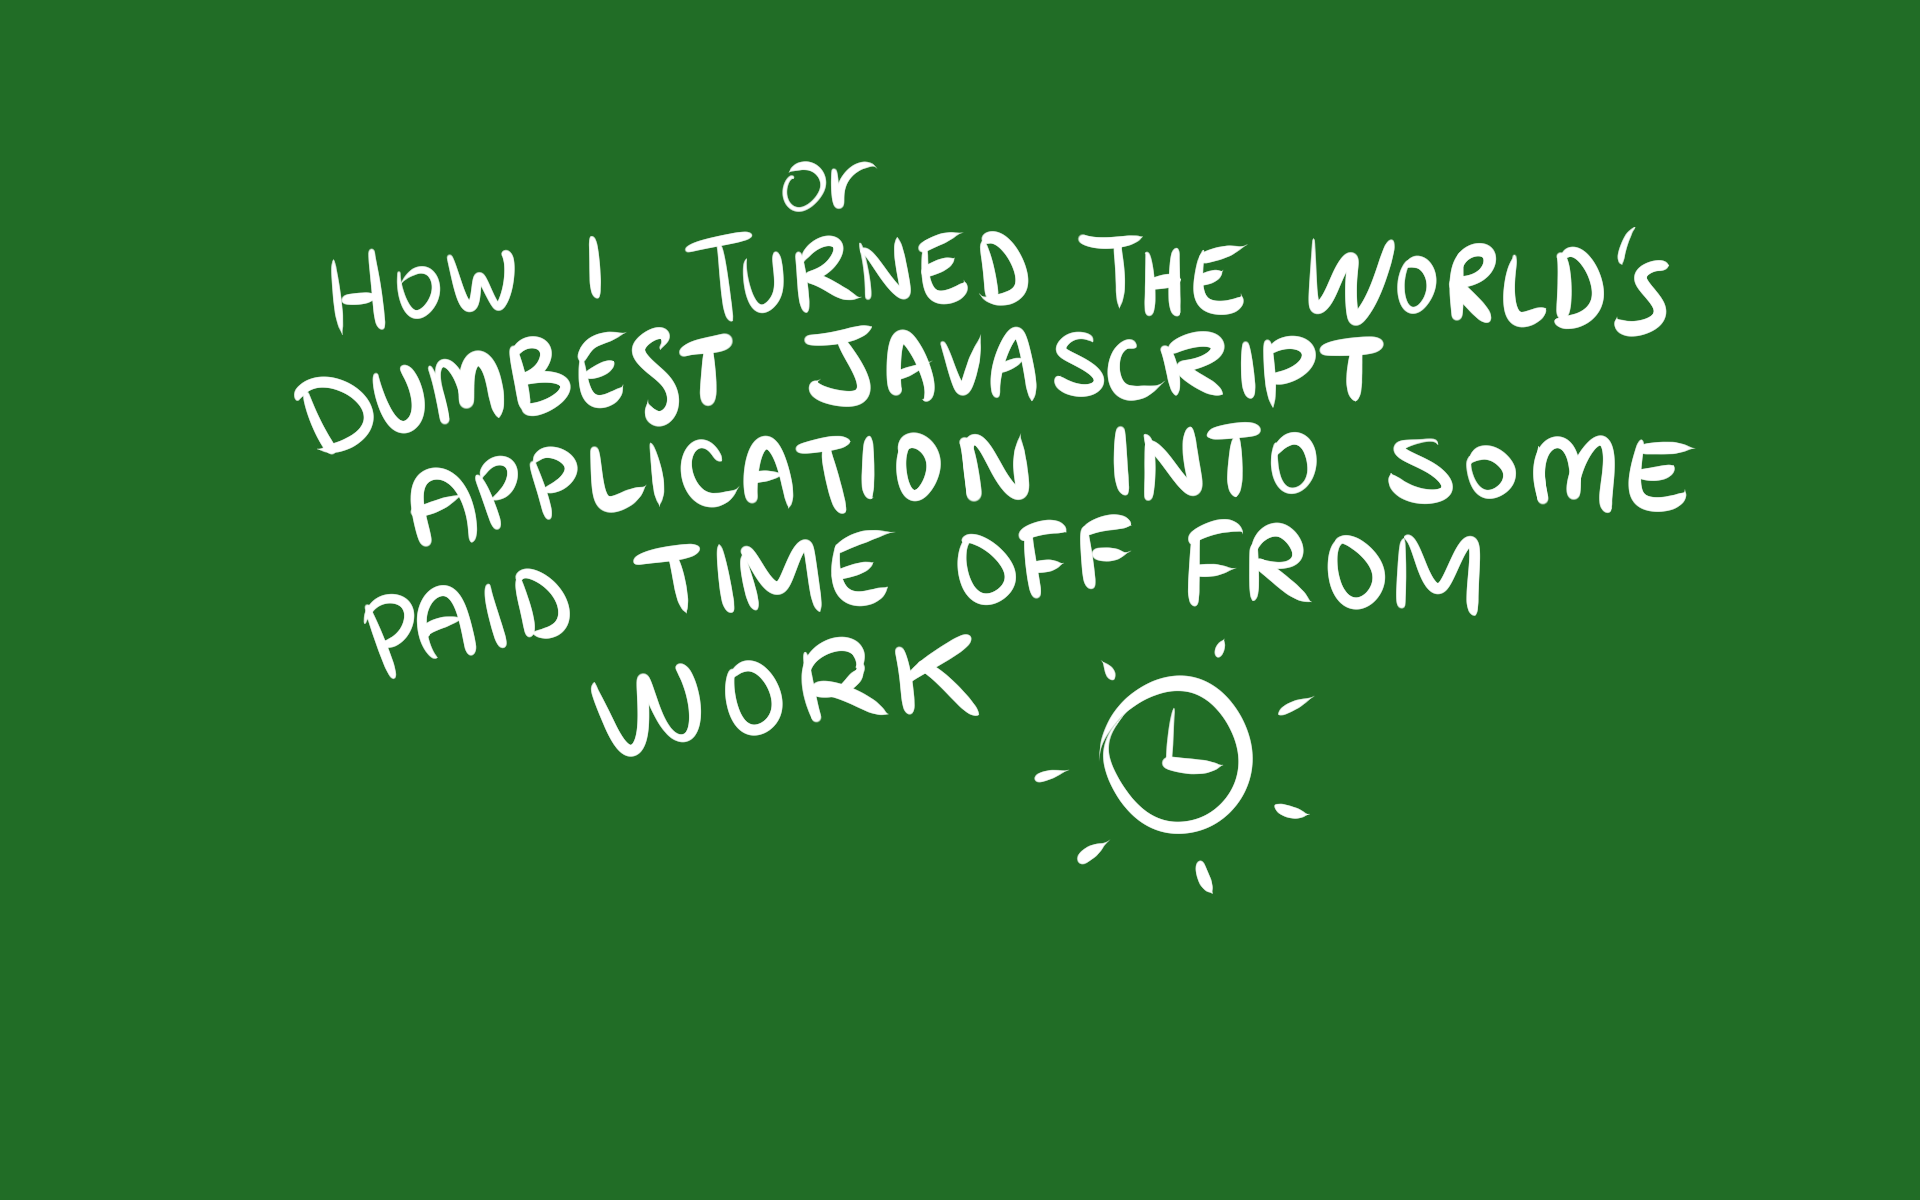 or
HOW I TURNED THE WORLD'S
DUMBEST JAVASCRIPT
APPLICATION INTO SOME
PAID TIME OFF FROM
WORK